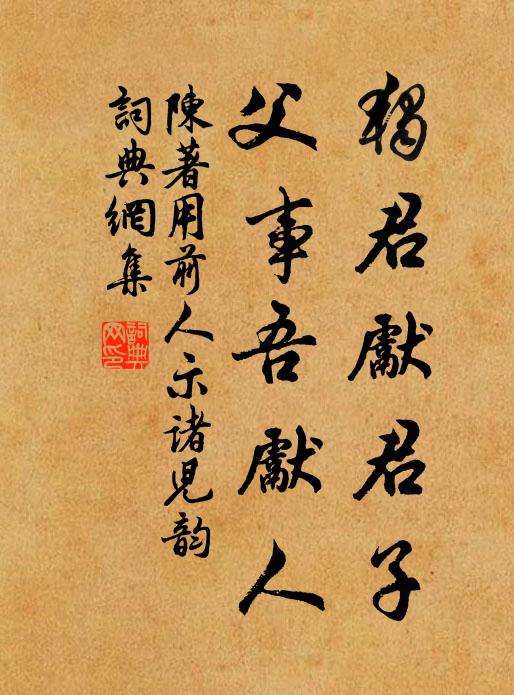 獨君獻君子
父事吾獻人
陳著用前人示諸兒韻
詞典網集
詞典
网印